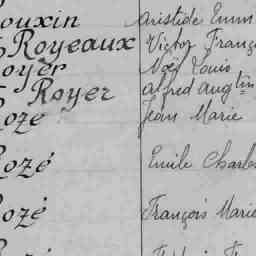 ouxin Aristide Emm
Royeaux Victor Franç
oyer Noël Louis
Royer Alfred Aug tin
ozé Jean Marie
ozé Emile Charles
ozé François Marie